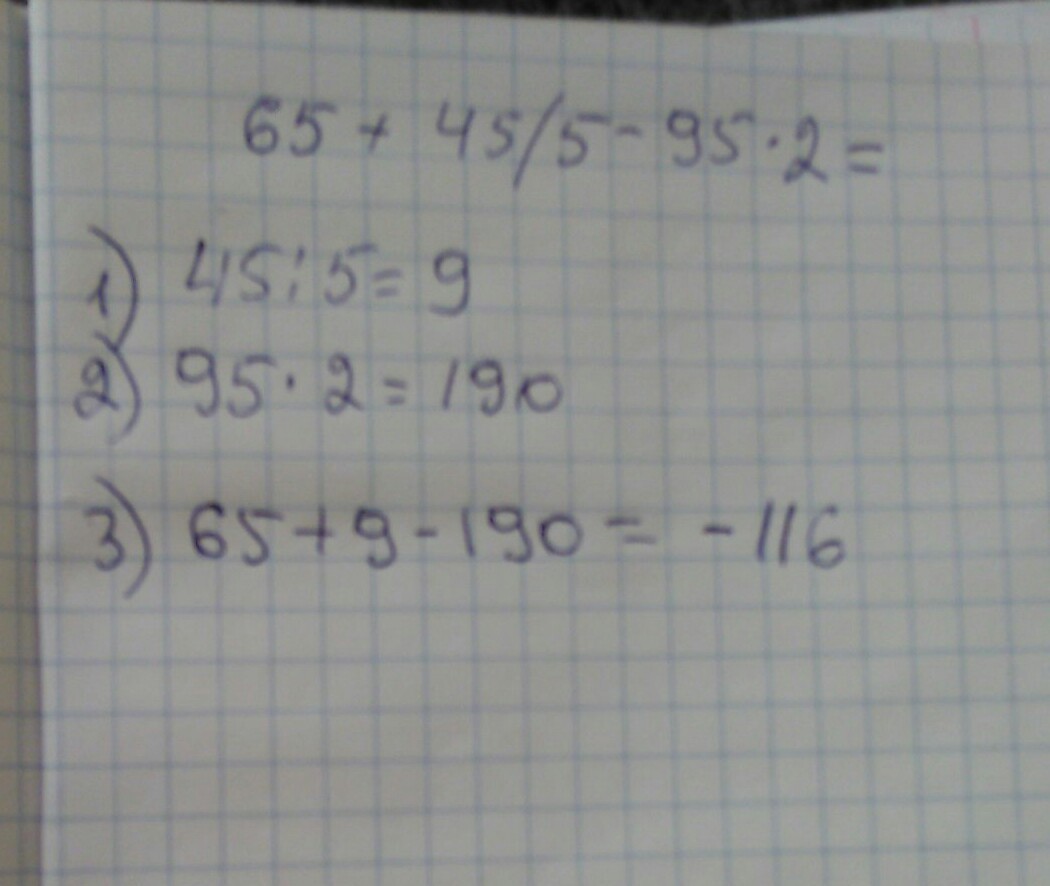 65 + 45/5 - 95 · 2 =
1) 45 : 5 = 9
2) 95 · 2 = 190
3) 65 + 9 - 190 = - 116